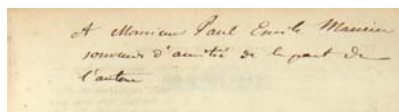 A Monsieur Paul Emile
souvenir d'amitié de la part de
l'auteur